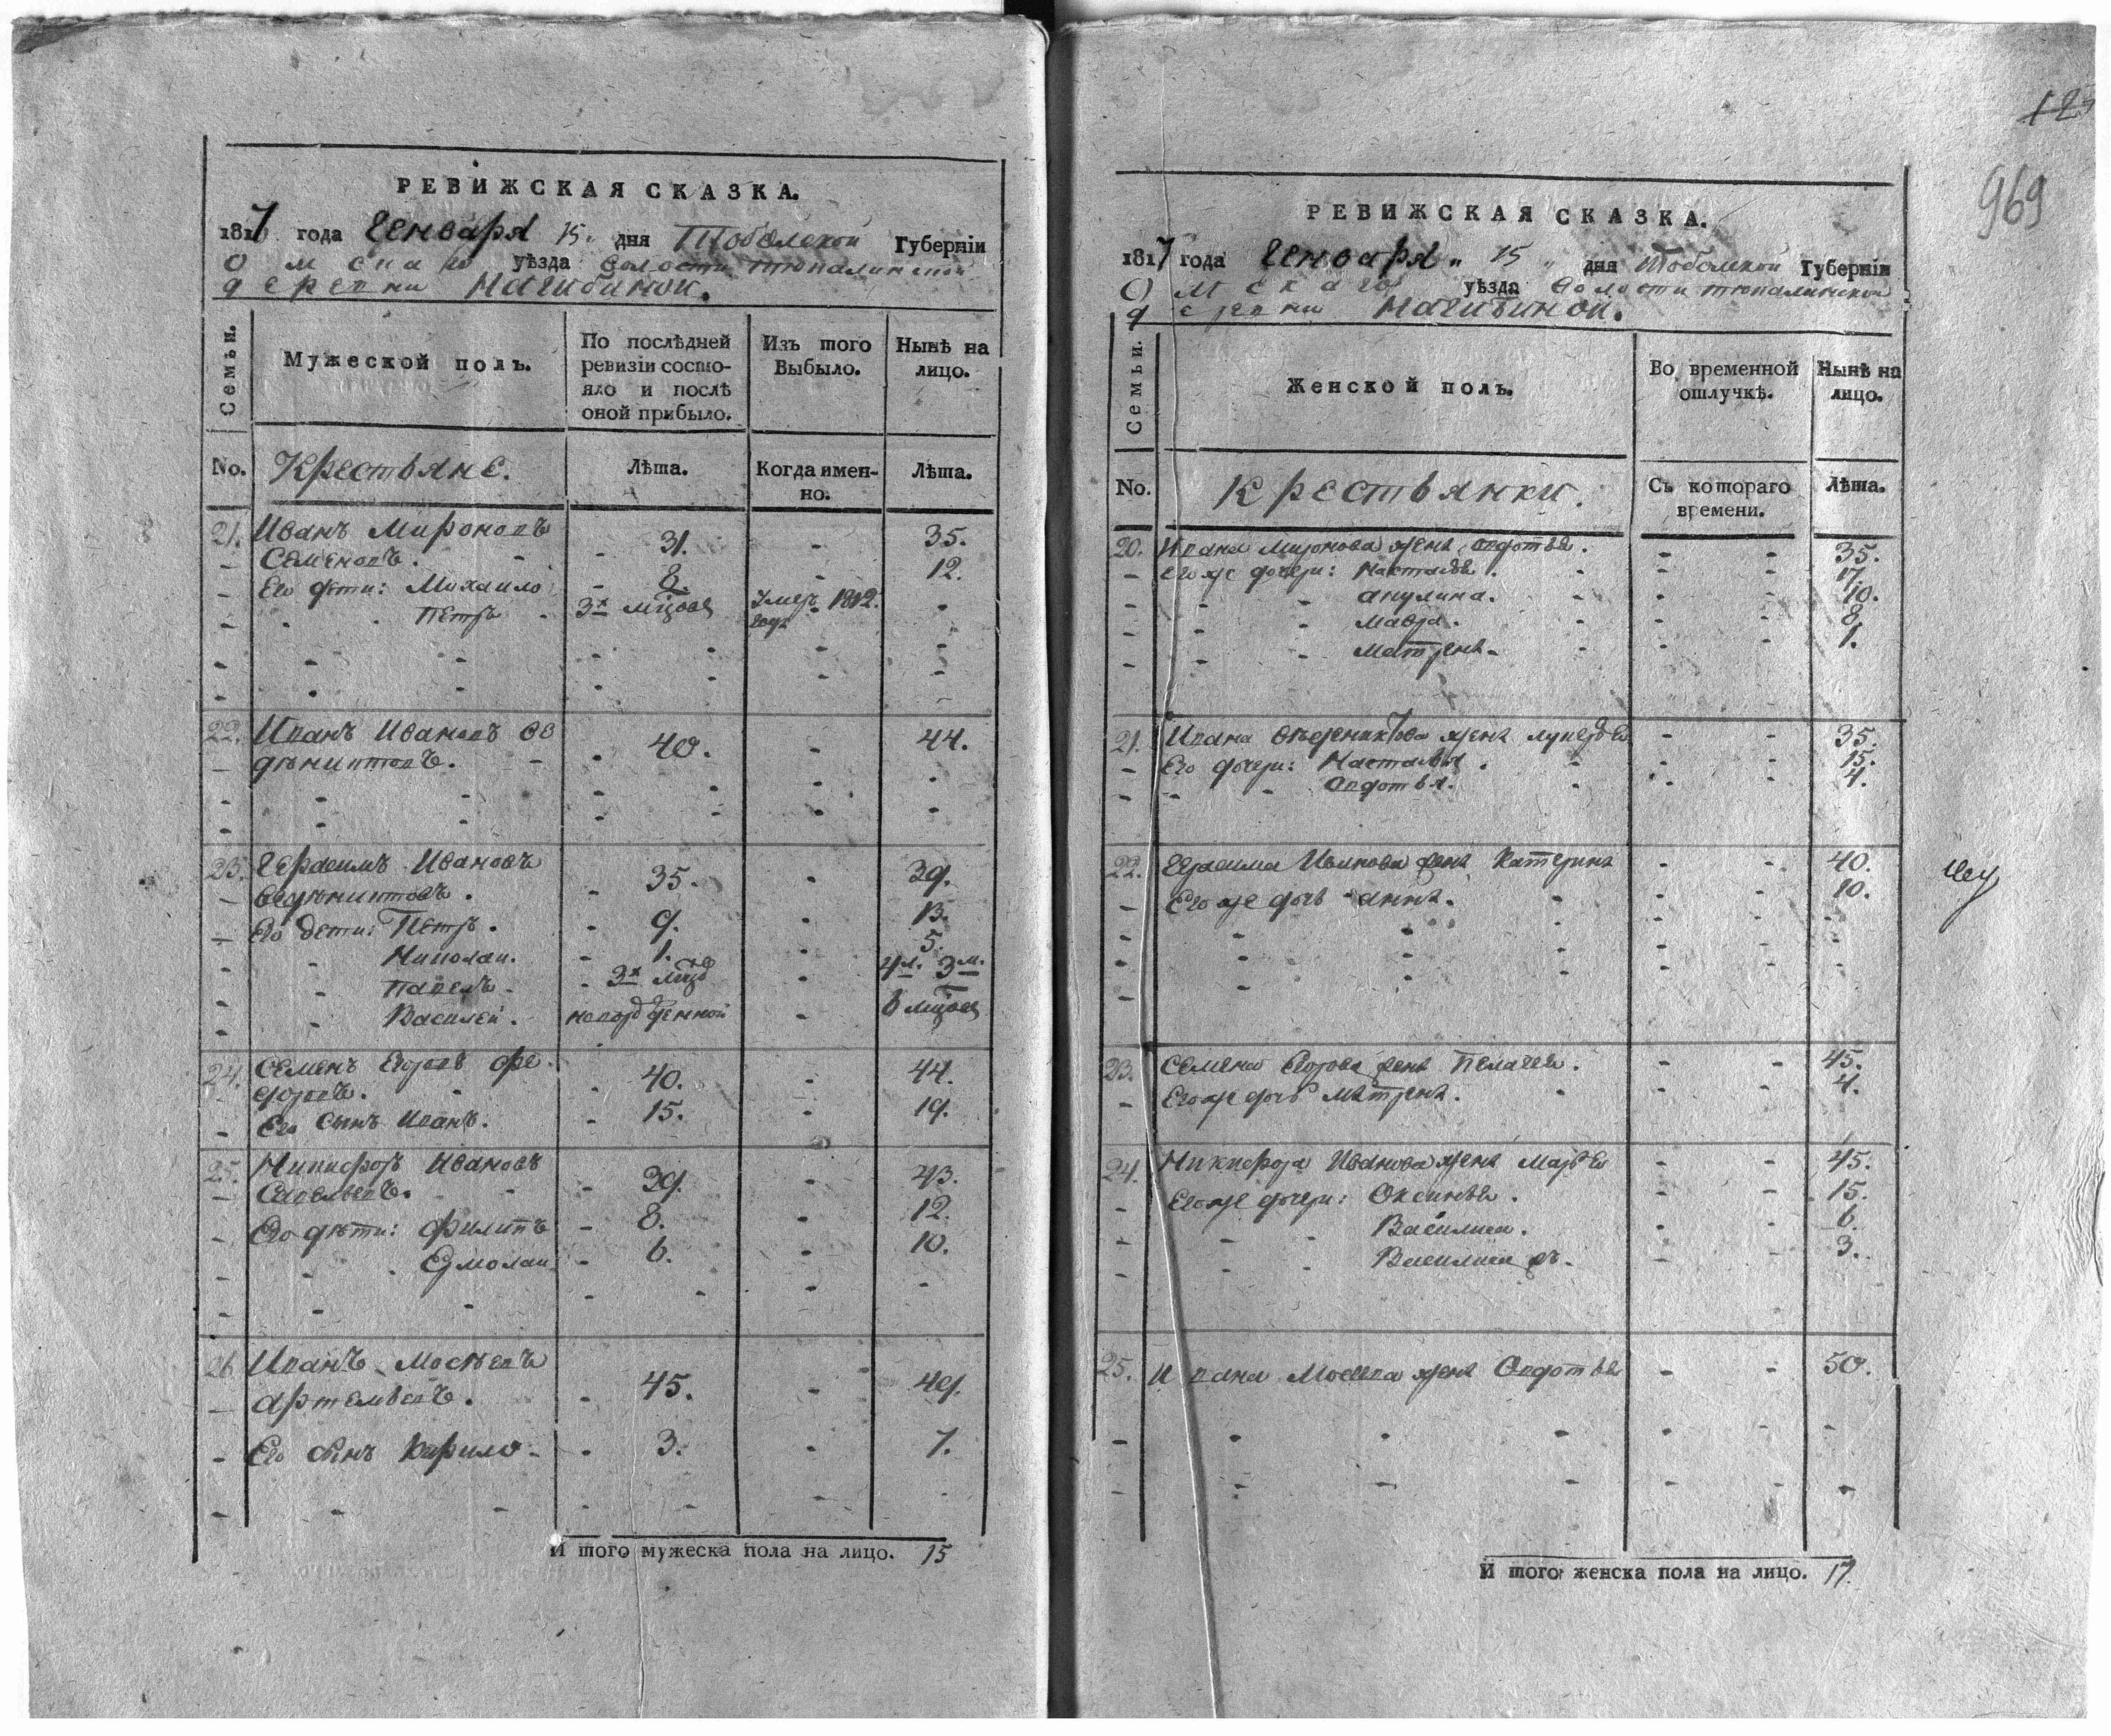 РЕВИЖСКАЯ СКАЗКА.
1817 года Генваря 15. дня Тобольской Губерніи
Омскаго уѣзда волости тюкалинской
деревни Нагибиной.
Семьи.
Мужеской полъ.
По послѣдней ревизіи состояло и послѣ оной прибыло.
Изъ того Выбыло.
Нынѣ на лицо.
No. Крестьяне. Лѣта. Когда именно. Лѣта.
21. Иванъ Мироновъ
Семеновъ. - 31. - 35.
Его дѣти: Михаило - 8. - 12.
Петръ - 3х мцовъ Умеръ 1812. году
22. Иванъ Ивановъ Ве
дѣниктовъ. - 40. - 44.
23. Герасимъ Ивановъ
Ведѣниктовъ. - 35. - 39.
Его дети: Петръ. - 9. - 13.
Николаи. - 1. - 5.
Павелъ - 3х мцовъ - 4л. 3м.
Василеи. новорожденной - 6 мцовъ
24. Семенъ Егоровъ Фе
доровъ. - 40. - 44.
Его сынъ Иванъ. - 15. - 19.
25. Никифоръ Ивановъ
Савельевъ. - 39. - 43.
Его дѣти: Филипъ - 8. - 12.
Ермолаи - 6. - 10.
26. Иванъ Мосѣевъ
Артемьевъ. - 45. - 49.
Его сынъ Карило - 3. - 7.
И того мужеска пола на лицо. 15
969
РЕВИЖСКАЯ СКАЗКА.
1817 года Генваря 15 дня Тобольской Губерніи
Омскаго уѣзда волости тюкалинской
деревни Нагибиной.
Семьи.
Женской полъ.
Во временной отлучкѣ.
Нынѣ на лицо.
No. Крестьянки. Съ котораго времени. Лѣта.
20. Ивана Миронова жена Овдотья. - - 35.
его же дочери: Насталья. - - 17.
акулина. - - 10.
Мавра. - - 8.
Матрена - - 1.
21. Ивана Веденихтова жена лукерья - - 35.
Его дочери: Насталья. - - 15.
Овдотья. - - 4.
22. Герасима Иванова жена Катерина - - 40.
Его же дочь анна. - - 10.
23. Семена Егорова жена Пелагея. - - 45.
Его же дочь Матрена. - - 4.
24. Никифора Иванова жена Марья - - 45.
Его же дочери: Оксинья. - - 15.
Василиса. - - 6.
Василиса жъ. - - 3.
25. Ивана Мосеева жена Овдотья - - 50.
И того женска пола на лицо. 17.